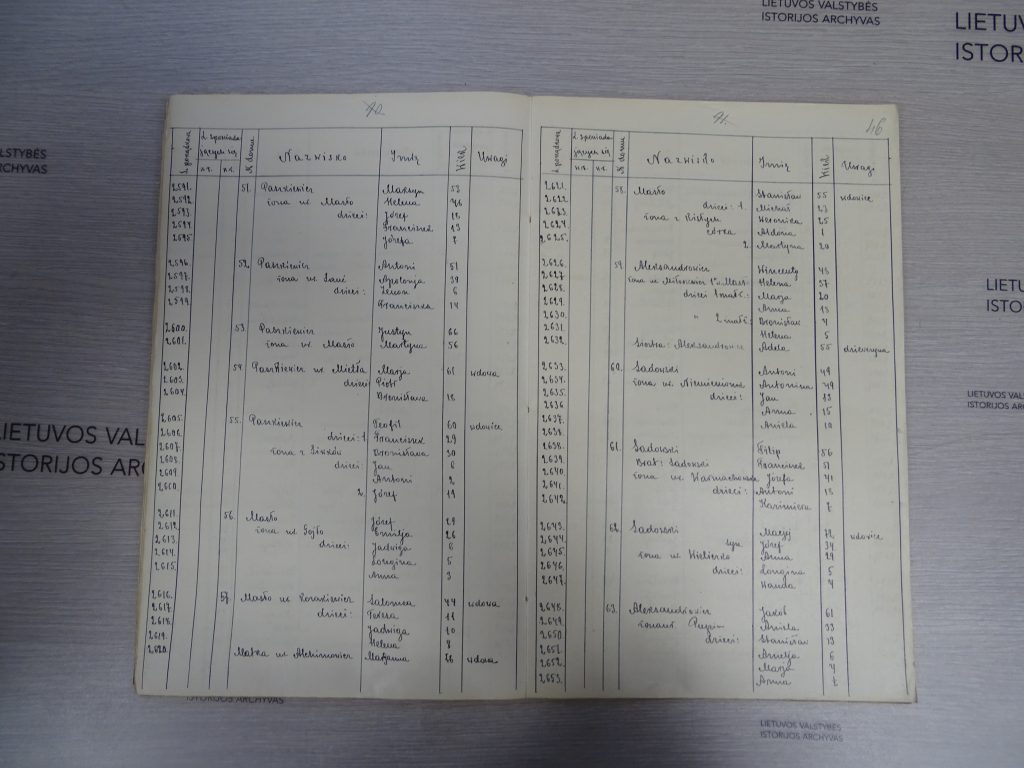 LIETUVOS VALSTYBĖS
ISTORIJOS ARCHYVAS
LIETUVOS
ISTOR
ALSTYBĖS
ARCHYVAS
LIETUVOS VALS
ISTORIJOS ARCHY
LIETU
ISTOR
LIETUVOS VALSTYB
ISTORIJOS ARCHYV
ISTORIJOS ARCHYVAS
LIETUVOS VALSTYBĖS
ISTORIJOS ARCHYVAS
42.
L. porządkowa
N domu
Nazwisko
Imię
Wiek
Uwagi
2591. 51. Paszkiewicz 53
2592. żona ur. Masło Helena 46
2593. dzieci: Józef 18
2594. Franciszek 13
2595. Józefa 7
2596. 52. Paszkiewicz Antoni 51
2597. żona ur. Apolonja 38
2598. dzieci: 6
2599. Franciszka 14
2600. 53. Paszkiewicz Justyn 66
2601. żona ur. Masło Martyna 56
2602. 54. Paszkiewicz ur. Marja 61 wdowa
2603. dzieci Piotr
2604. Bronisława 18
2605. 55. Paszkiewicz Teofil 60 wdowiec
2606. dzieci: 1. Franciszek 29
2607. żona z Bronisława 30
2608. dzieci: Jan 6
2609. Antoni 2
2610. 2. Józef 19
2611. 56. Masło Józef 29
2612. żona ur. Emilja 26
2613. dzieci: Jadwiga 6
2614. Longina 5
2615. Anna 3
2616. 57. Masło ur. Salomea 44 wdowa
2617. dzieci: Teresa 11
2618. Jadwiga 10
2619. Helena 8
2620. Matka ur. Marjanna wdowa
41.
46
L. porządkowa
N domu
Nazwisko
Imię
Wiek
Uwagi
2621. 58. Masło Stanisław 55 wdowiec
2622. dzieci: 1. Michał 27
2623. żona z Weronika 25
2624. córka Aldona 1
2625. 2. Martyna 20
2626. 59. Aleksandrowicz Wincenty 45
2627. żona ur. Helena 37
2628. dzieci Marja 20
2629. Anna 13
2630. Bronisław 4
2631. Helena 5
2632. Siostra: Aleksandrowicz Adela 55
2633. 60. Sadowski Antoni 49
2634. żona ur. Antonina 49
2635. dzieci: Jan 18
2636. Anna 15
2637. Aniela 10
2638. 61. Sadowski Filip 56
2639. Brat: Sadowski Franciszek 51
2640. żona ur. Józefa 41
2641. dzieci: Antoni 18
2642. Kazimiera 7
2643. 62. Sadowski Maciej 72 wdowiec
2644. syn Józef 34
2645. żona ur. Anna 29
2646. dzieci: Longina 5
2647. Wanda 4
2648. 63. Aleksandrowicz Jakób 61
2649. żona ur. Aniela 33
2650. dzieci: Stanisław 13
2651. Amelja 6
2652. Marja 4
2653. Anna 2